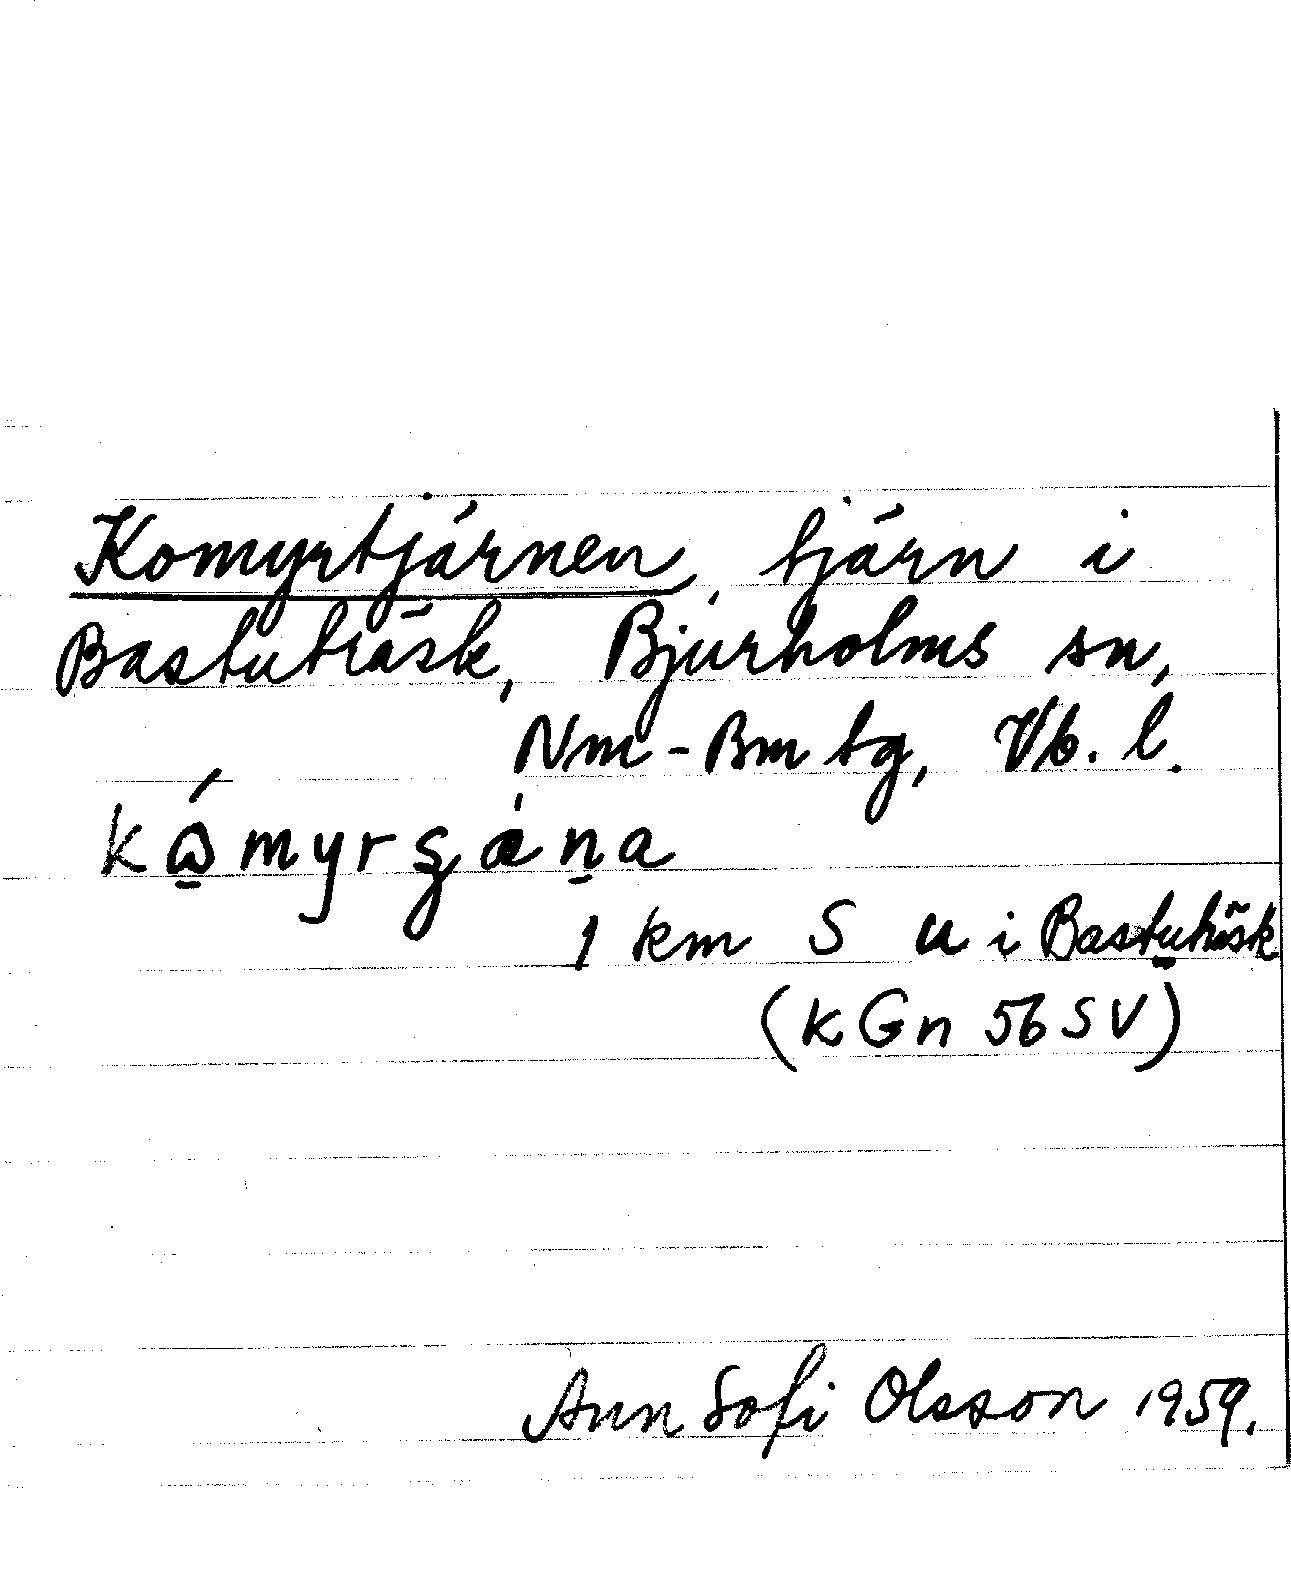 Komyrtjärnen, tjärn i
Bastuträsk, Bjurholms sn,
Nm-Bm tg, Vb. l.
1 km S u i Bastuträsk
(k Gn 56 SV)
Ann Sofi Olsson 1959.